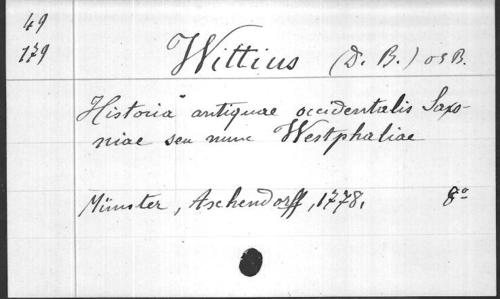 49
179
Wittius (D. B.) OSB.
Historia antiquae occidentalis Saxo-
niae seu nunc Westphaliae
Münster, Aschendorff, 1778. 8°